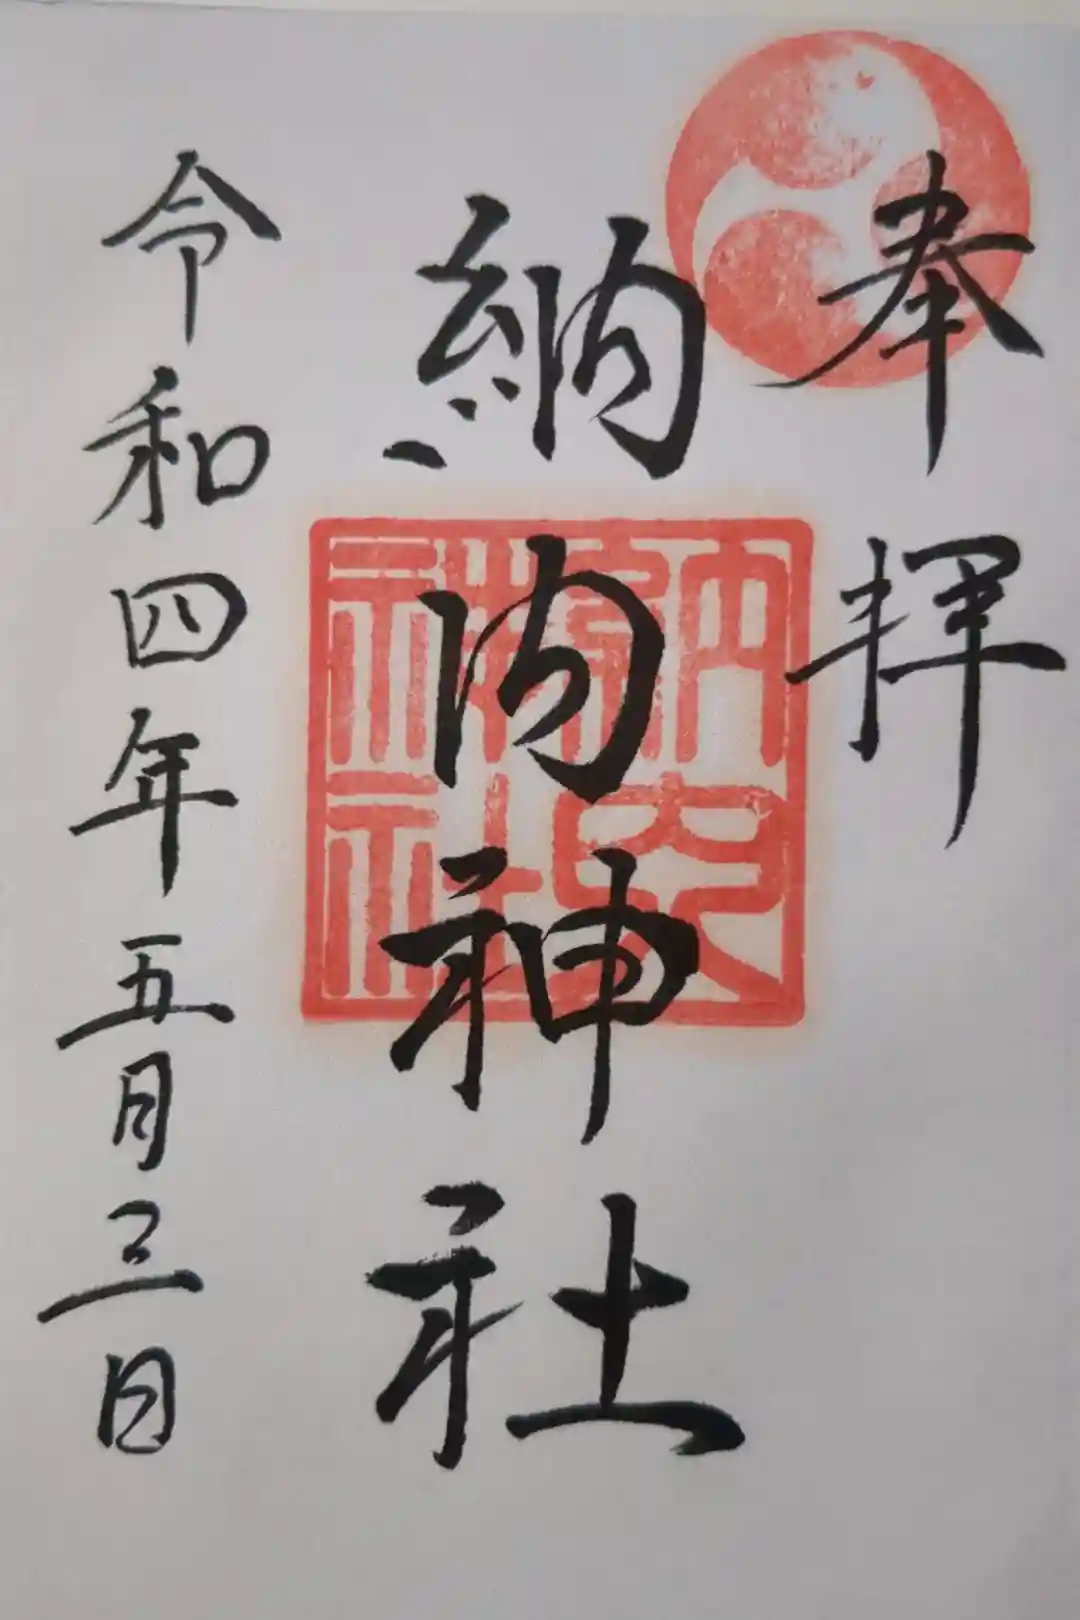 奉拝
納内神社
納内
神社
令和四年五月三日